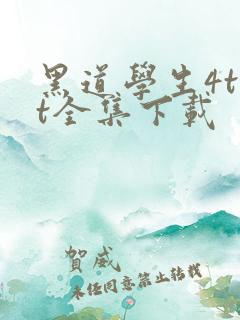 黑道學生4t
t全集下載
賀威
未經同意禁止轉載